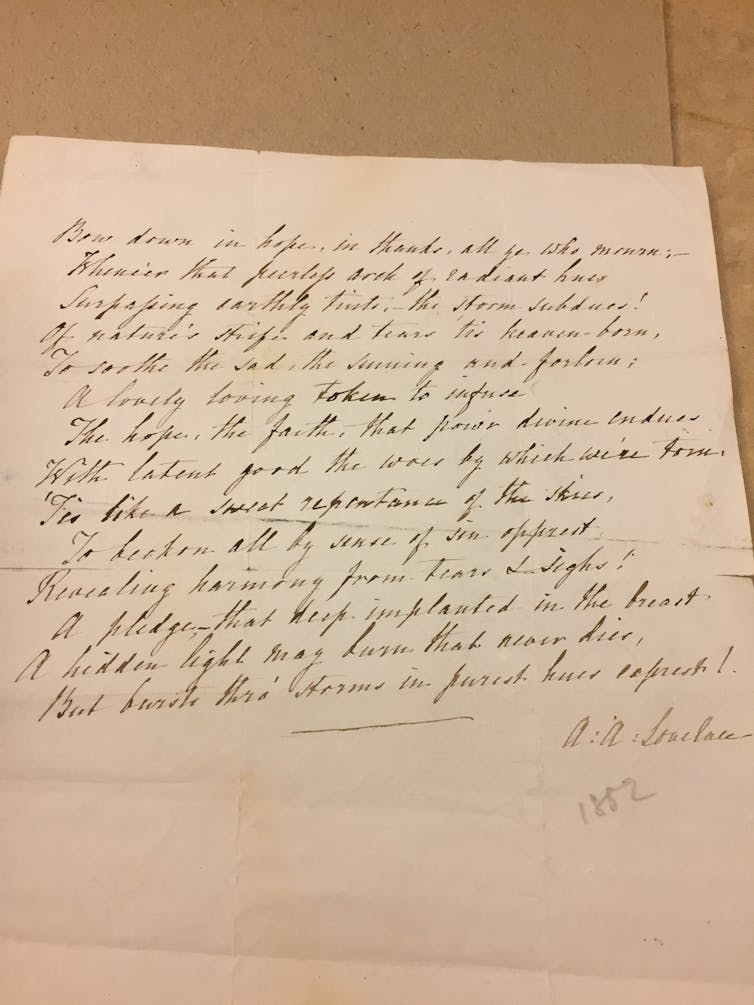 Bow down in hope, in thanks, all ye who mourn;—
Whene'er that peerless arch of radiant hues
Surpassing earthly tints,— the storm subdues!
Of nature's strife and tears 'tis heaven-born,
To soothe the sad, the sinning and forlorn;
A lovely loving token to infuse
The hope, the faith, that pow'r divine endues
With latent good the woes by which we're torn.
'Tis like a sweet repentance of the skies,
To beckon all by sense of sin opprest
Revealing harmony from tears & sighs!
A pledge,—that deep implanted in the breast
A hidden light may burn that never dies,
But bursts thro' storms in purest hues exprest!
A: A: Lovelace
1852